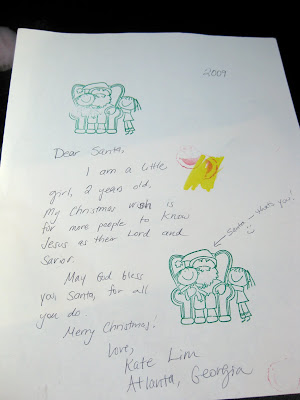 2009
Dear Santa,
I am a little
girl, 2 years old.
My Christmas wish is
for more people to know
Jesus as their Lord and
Savior.
Santa - that's you!
May God bless
you, Santa, for all
you do.
Merry Christmas!
Love,
Kate Lim
Atlanta, Georgia